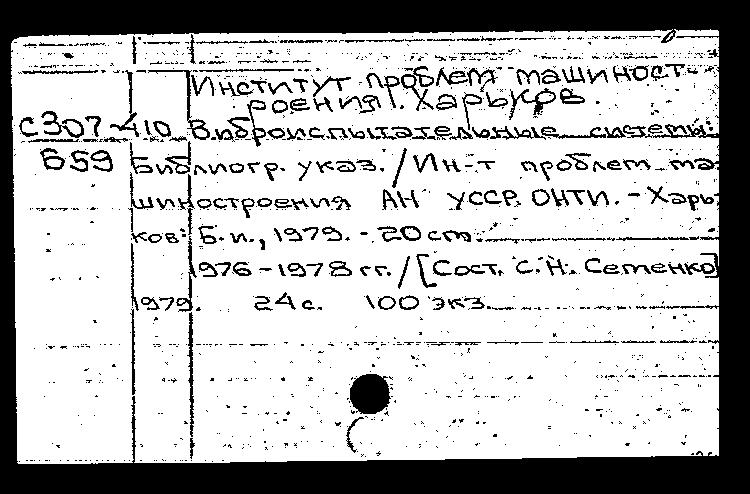 Институт проблем машиност-
роения. Харьков.
С307-410 Виброиспытательные системы:
Б59 Библиогр. указ. / Ин-т проблем ма-
шиностроения АН УССР. ОНТИ. - Харь-
ков: Б.и., 1979. - 20 см.
1976-1978 гг. / [Сост. С.Н. Сетенко]
1979. 24 с. 100 экз.